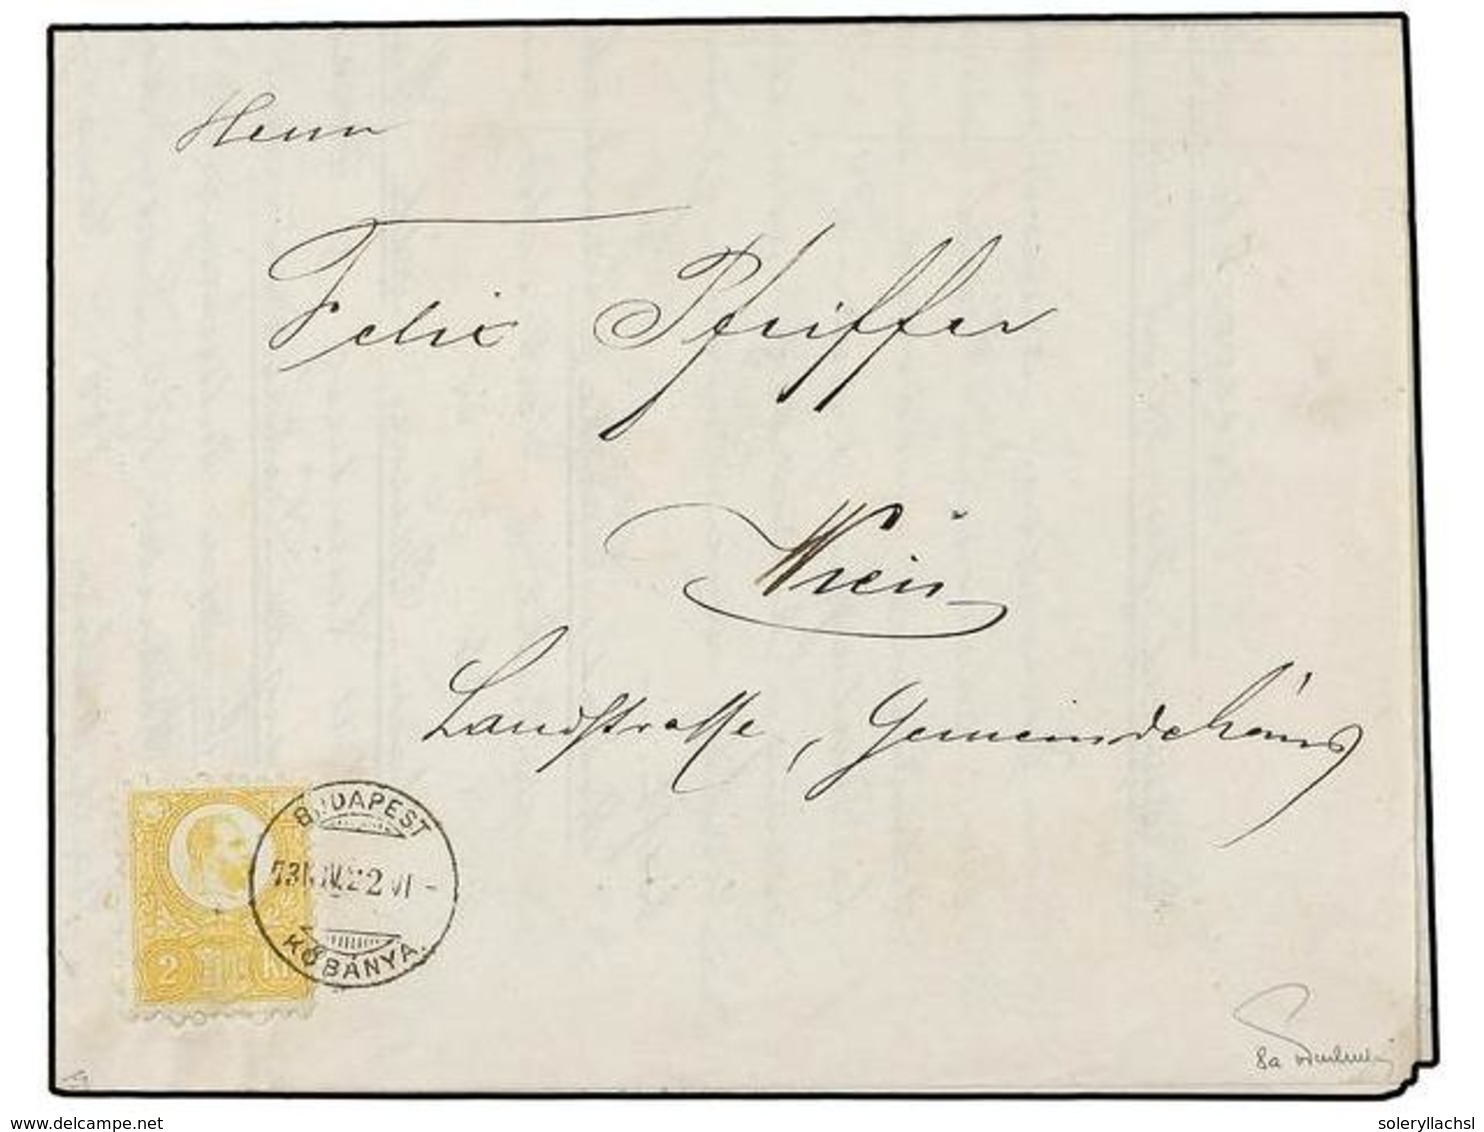 Herrn
Felix Pfeiffer
Wien
Landstrasse, Gemeindehaus
2 Kr
BUDAPEST
KŐBÁNYA.
8a
delcampe.net
soleryllachsl